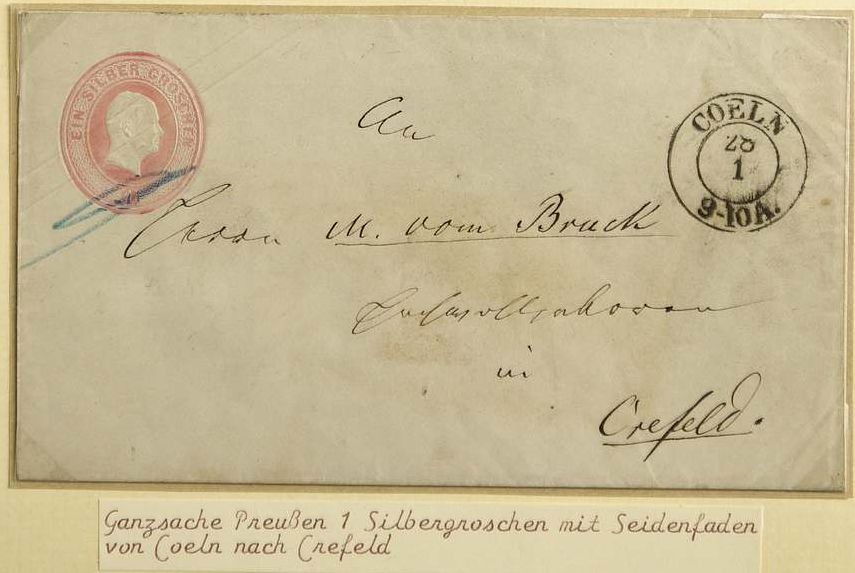 EIN SILBER GROSCHEN
COELN
28
1
9-10A.
An
Herrn M. vom Bruck
Hochwohlgeboren
in
Crefeld.
Ganzsache Preußen 1 Silbergroschen mit Seidenfaden
von Coeln nach Crefeld